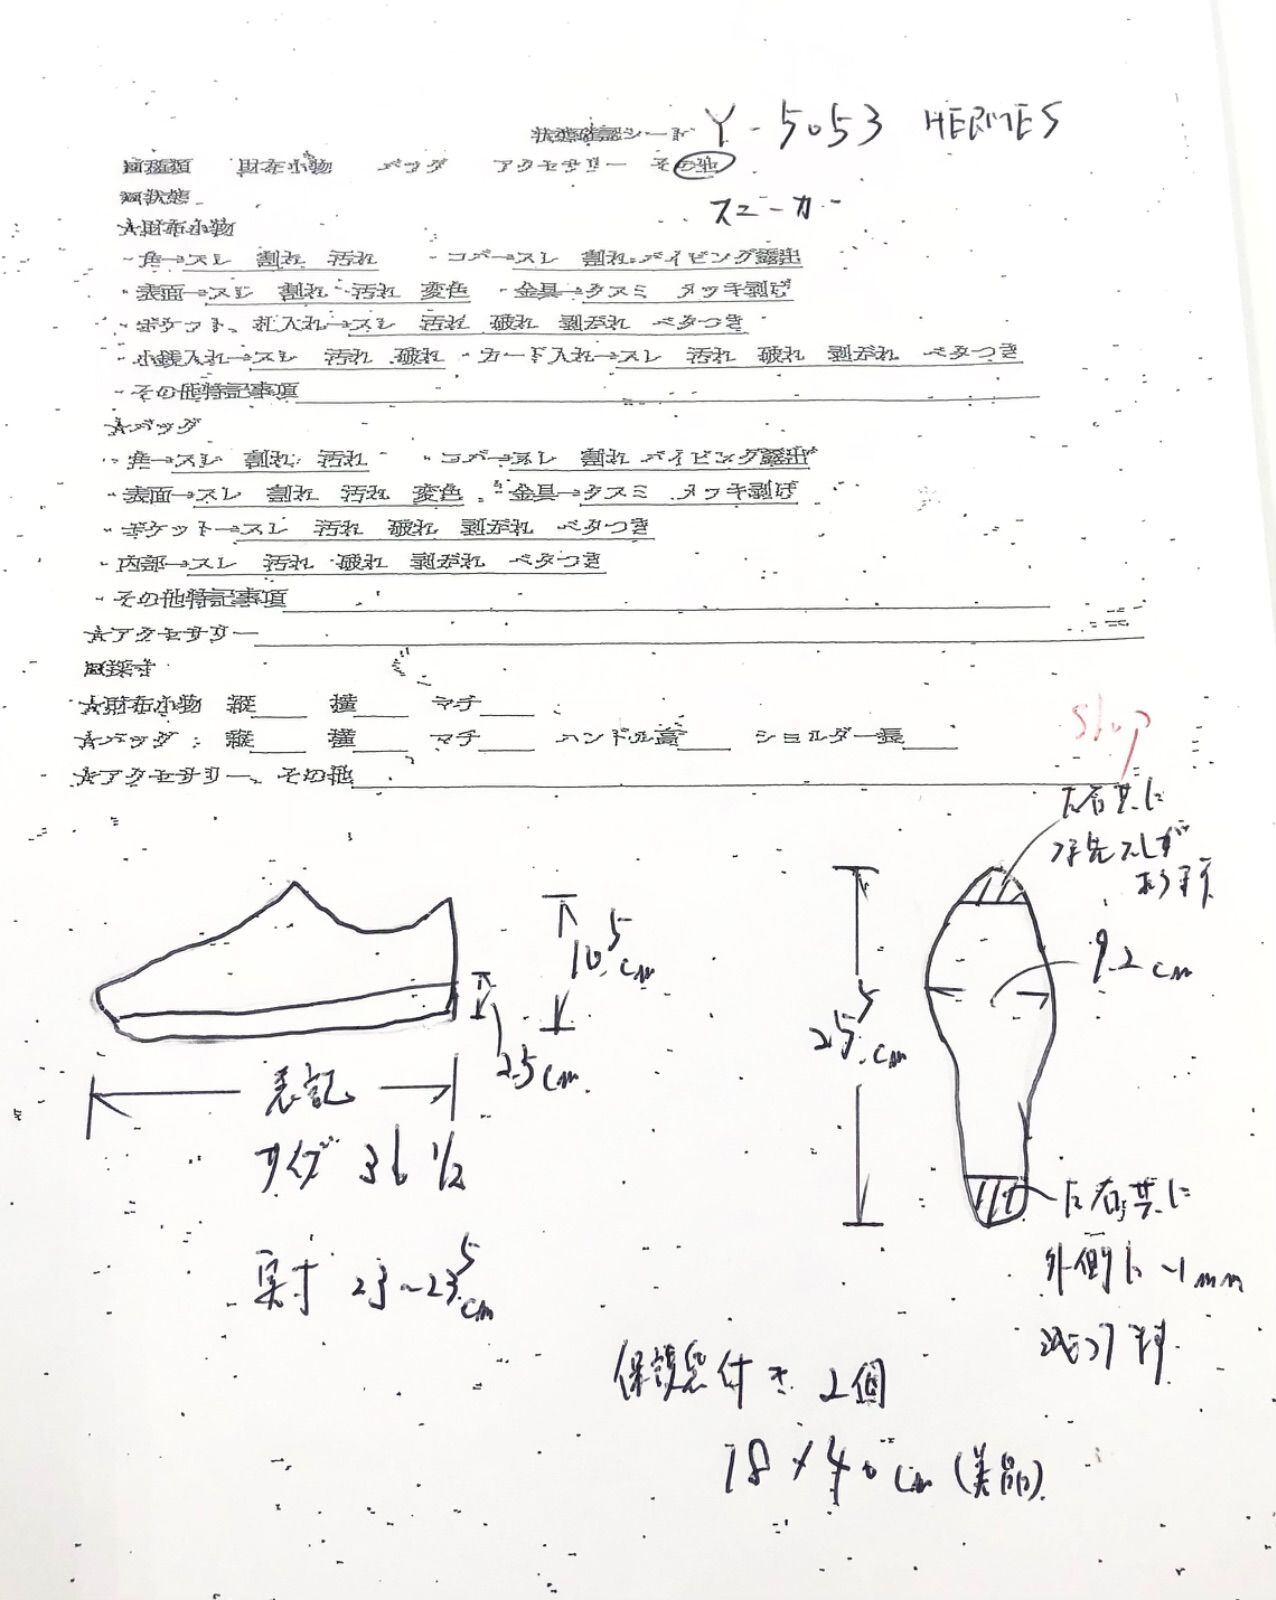 状態確認シート Y-5053 HERMES
□種類 財布小物 バッグ アクセサリー その他
□状態 スニーカー
☆財布小物
・角→スレ 割れ 汚れ ・コバ→スレ 割れ パイピング露出
・表面→スレ 割れ 汚れ 変色 ・金具→クスミ メッキ剥げ
・ポケット、札入れ→スレ 汚れ 破れ 剥がれ ベタつき
・小銭入れ→スレ 汚れ 破れ ・カード入れ→スレ 汚れ 破れ 剥がれ ベタつき
・その他特記事項
☆バッグ
・角→スレ 割れ 汚れ ・コバ→スレ 割れ パイピング露出
・表面→スレ 割れ 汚れ 変色 ・金具→クスミ メッキ剥げ
・ポケット→スレ 汚れ 破れ 剥がれ ベタつき
・内部→スレ 汚れ 破れ 剥がれ ベタつき
・その他特記事項
☆アクセサリー
□採寸
☆財布小物 縦 横 マチ
☆バッグ: 縦 横 マチ ハンドル高 ショルダー長
☆アクセサリー、その他
左右共に
スレが
あります
10.5cm
2.5cm
25.5cm
9.2cm
表記
サイズ 36 1/2
実寸 23~23.5cm
左右共に
外側に~1mm
減り有
保護袋付き 2個
18×40cm (美品)